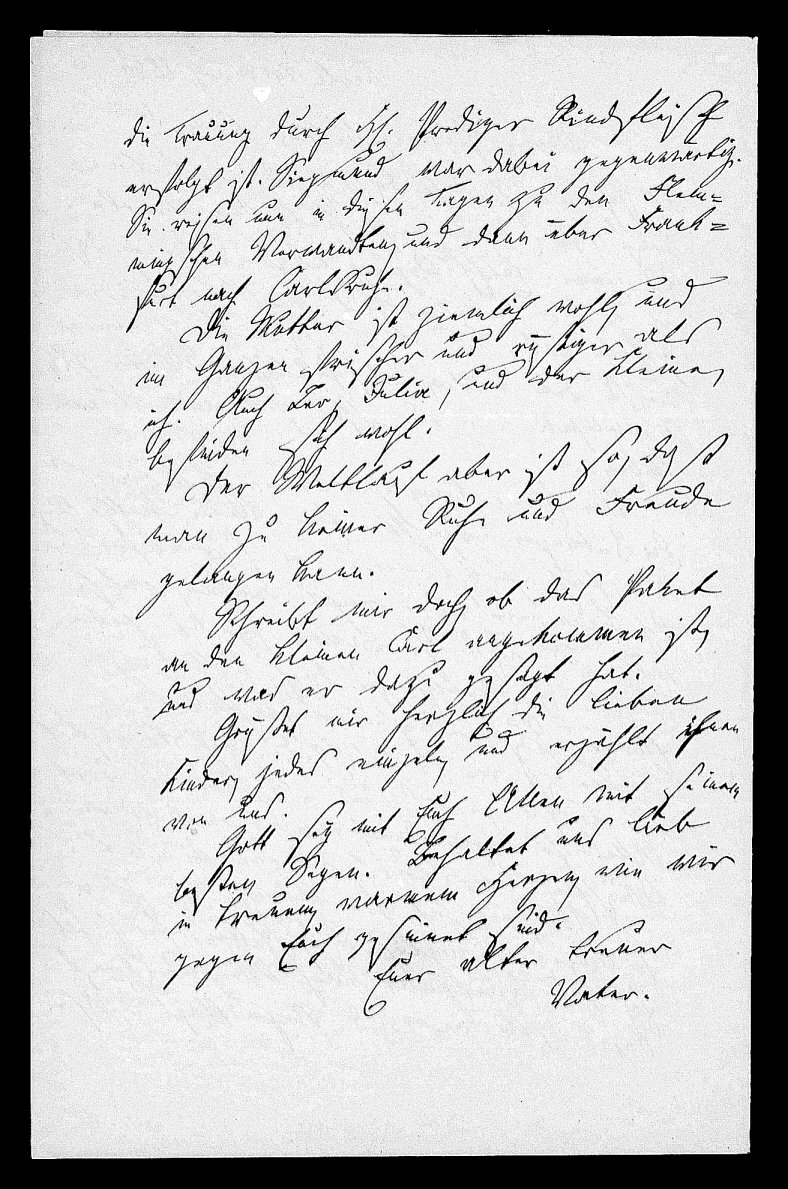 die Trauung durch H. Prediger Rindfleisch
erfolgt ist. Siegmund war dabei gegenwärtig.
Sie reisen nun in diesen Tagen zu den Flem=
mingschen Verwandten, und dann über Frank=
furt nach Carlsruhe.
Die Mutter ist ziemlich wohl, und
im Ganzen frischer und rüstiger als
ich. Auch Julia, und der Kleine,
befinden sich wohl.
Der Weltlauf aber ist so, daß
man zu keiner Ruhe und Freude
gelangen kann.
Schreibt mir doch, ob das Paket
an den kleinen Carl angekommen ist,
und was er dazu gesagt hat.
Grüßet mir herzlich die lieben
Kinder, jedes einzeln, und erzählt ihnen
von uns.
Gott sey mit Euch Allen mit seinem
besten Segen. Behaltet uns lieb
in treuem, warmem Herzen, wie wir
gegen Euch gesinnet sind.
Euer alter treuer
Vater.